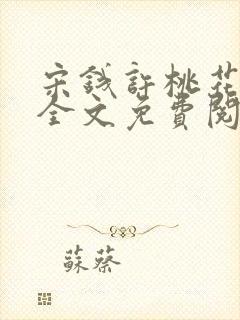 宋錢許桃花
全文免費閱
蘇蔡